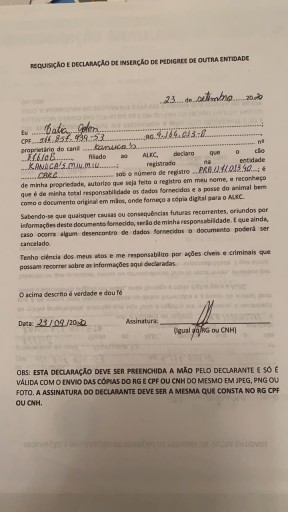 REQUISIÇÃO E DECLARAÇÃO DE INSERÇÃO DE PEDIGREE DE OUTRA ENTIDADE
23 de setembro 2020
Eu
CPF RG 4.164.013-0
proprietário do canil Kanuca's nº
filiado ao ALKC, declaro que o cão
KANUCA'S MIUMIU registrado na entidade
sob o número de registro ; é
de minha propriedade, autorizo que seja feito o registro em meu nome, e reconheço
que é de minha total responsabilidade os dados fornecidos e a posse do animal bem
como o documento original em mãos, onde forneço a cópia digital para o ALKC.
Sabendo-se que quaisquer causas ou consequências futuras recorrentes, oriundos por
informações deste documento fornecido, serão de minha responsabilidade. E que ainda,
caso ocorra algum desencontro de dados fornecidos o documento poderá ser
cancelado.
Tenho ciência dos meus atos e me responsabilizo por ações cíveis e criminais que
possam recorrer sobre as informações aqui declaradas.
O acima descrito é verdade e dou fé
Data: 23/09/2020 Assinatura:
(Igual ao RG ou CNH)
OBS: ESTA DECLARAÇÃO DEVE SER PREENCHIDA A MÃO PELO DECLARANTE E SÓ É
VÁLIDA COM O ENVIO DAS CÓPIAS DO RG E CPF OU CNH DO MESMO EM JPEG, PNG OU
FOTO. A ASSINATURA DO DECLARANTE DEVE SER A MESMA QUE CONSTA NO RG CPF
OU CNH.